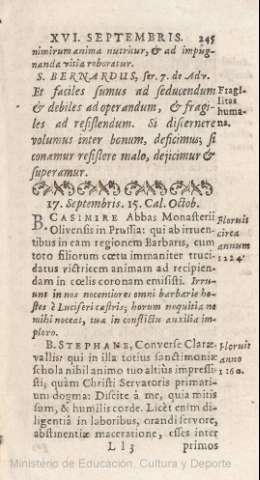 XVI. SEPTEMBRIS. 245
nimirum anima nutritur, & ad impug-
nanda vitia roboratur.
S. BERNARDUS, ser. 7. de Adv.
Et faciles sumus ad seducendum
& debiles ad operandum, & fragi-
les ad resistendum. Si discernere
volumus inter bonum, deficimus; si
conamur resistere malo, dejicimur &
superamur.
Fragi-
litas
huma-
na.
17. Septembris. 15. Cal. Octob.
B. CASIMIRE Abbas Monasterii
Olivensis in Prussia: qui ab irruen-
tibus in eam regionem Barbaris, cum
toto filiorum cœtu immaniter truci-
datus victricem animam ad recipien-
dam in cœlis coronam emisisti. Irru-
unt in nos nocentiores omni barbarie ho-
stes è Luciferi castris; horum nequitia ne
mihi noceat, tua in conflictu auxilia im-
ploro.
Floruit
circa
annum
1224.
B. STEPHANE, Converse Claræ-
vallis: qui in illa totius sanctimoniæ
schola nihil animo tuo altiùs impressi-
sti, quàm Christi Servatoris primari-
um dogma: Discite à me, quia mitis
sum, & humilis corde. Licèt enim di-
ligentiâ in laboribus, orandi fervore,
abstinentiæ maceratione, esses inter
Floruit
anno
1160.
Ll 3 primos
Ministerio de Educación, Cultura y Deporte